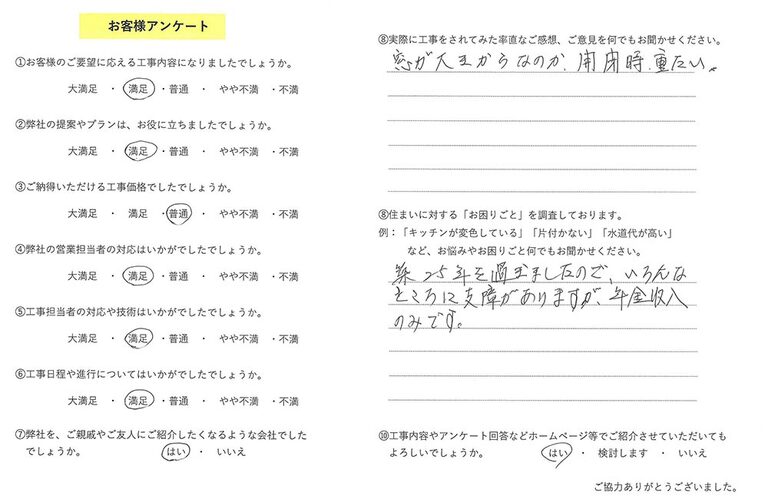 お客様アンケート
①お客様のご要望に応える工事内容になりましたでしょうか。
大満足 ・ 満足 ・普通 ・ やや不満 ・不満
②弊社の提案やプランは、お役に立ちましたでしょうか。
大満足 ・ 満足 ・普通 ・ やや不満 ・不満
③ご納得いただける工事価格でしたでしょうか。
大満足 ・ 満足 ・普通 ・ やや不満 ・不満
④弊社の営業担当者の対応はいかがでしたでしょうか。
大満足 ・ 満足 ・普通 ・ やや不満 ・不満
⑤工事担当者の対応や技術はいかがでしたでしょうか。
大満足 ・ 満足 ・普通 ・ やや不満 ・不満
⑥工事日程や進行についてはいかがでしたでしょうか。
大満足 ・ 満足 ・普通 ・ やや不満 ・不満
⑦弊社を、ご親戚やご友人にご紹介したくなるような会社でした
でしょうか。 はい ・ いいえ
⑧実際に工事をされてみた率直なご感想、ご意見を何でもお聞かせください。
窓が大きいからなのか、開閉時、重たい。
⑧住まいに対する「お困りごと」を調査しております。
例：「キッチンが変色している」「片付かない」「水道代が高い」
など、お悩みやお困りごと何でもお聞かせください。
築25年を過ぎましたので、いろんな
ところに支障がありますが、年金収入
のみです。
⑩工事内容やアンケート回答などホームページ等でご紹介させていただいても
よろしいでしょうか。 はい ・ 検討します ・ いいえ
ご協力ありがとうございました。